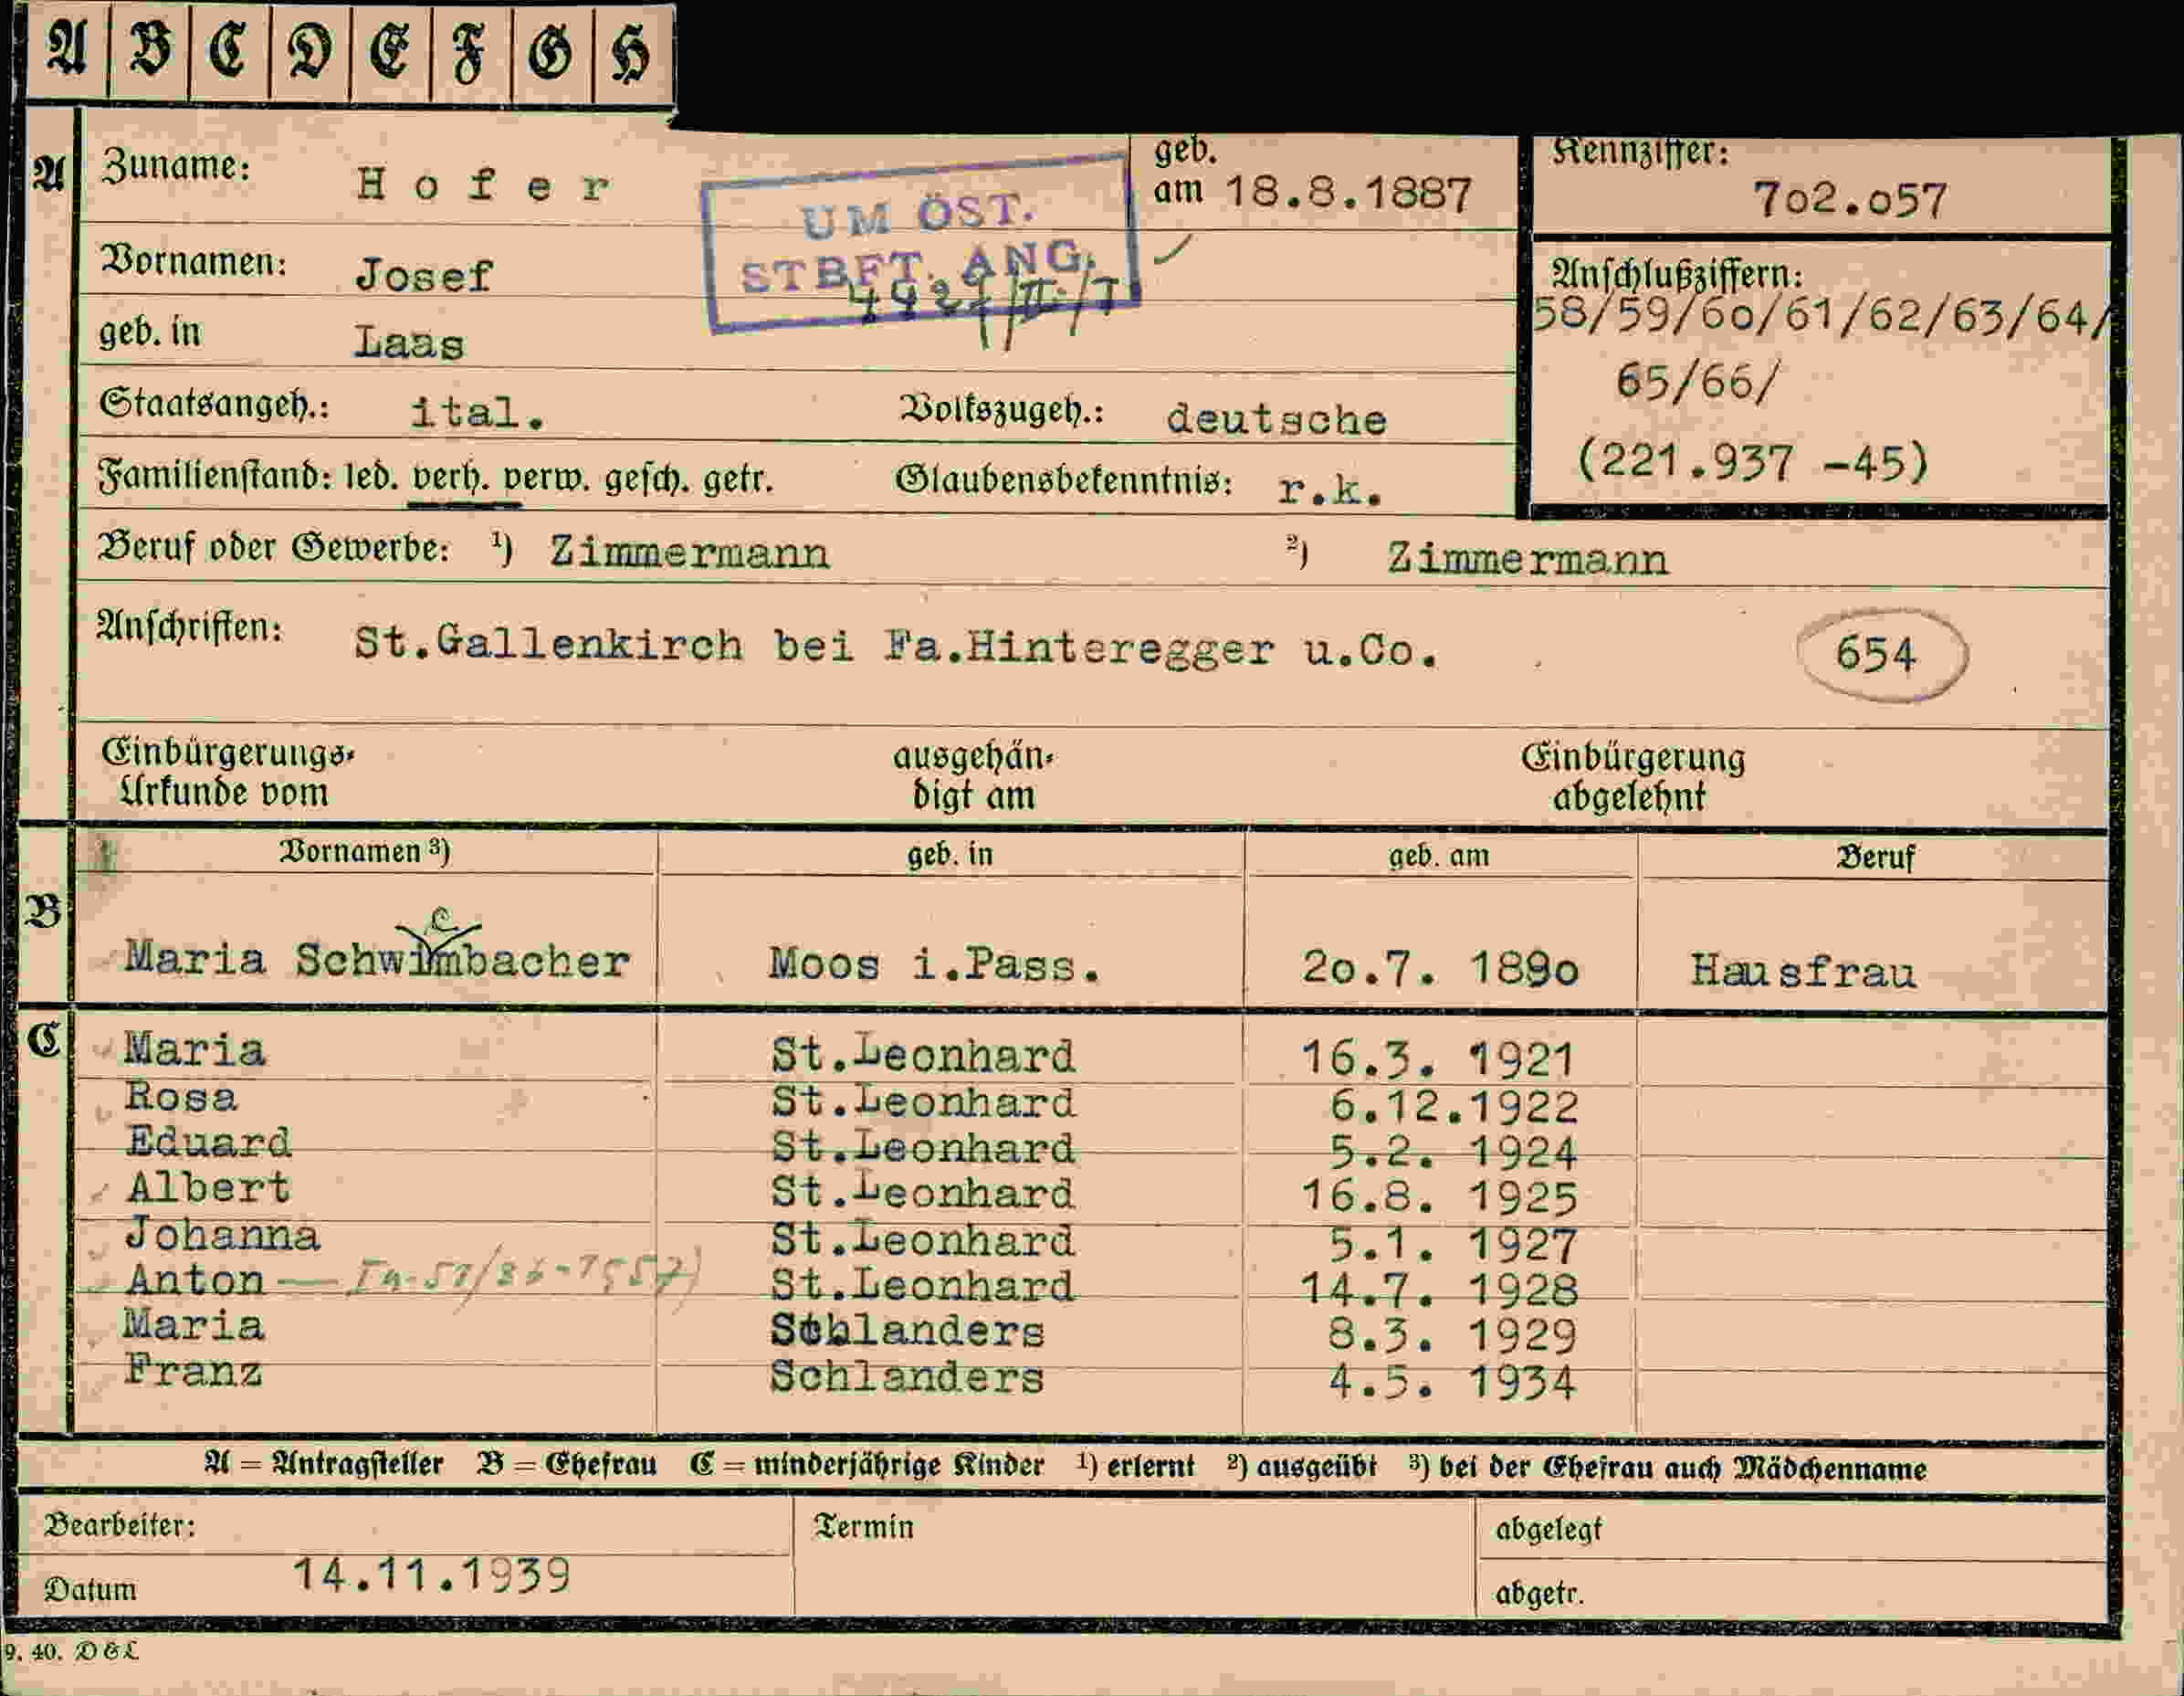 A B C D E F G H
A Zuname: Hofer geb. am 18.8.1887 Kennziffer: 702.057
UM ÖST.
STBFT. ANG.
Vornamen: Josef
Anschlußziffern:
58/59/60/61/62/63/64/
65/66/
(221.937 -45)
geb. in Laas
Staatsangeh.: ital. Volkszugeh.: deutsche
Familienstand: led. verh. verw. gesch. getr. Glaubensbekenntnis: r.k.
Beruf oder Gewerbe: 1) Zimmermann 2) Zimmermann
Anschriften: St.Gallenkirch bei Fa.Hinteregger u.Co. 654
Einbürgerungs- ausgehän- Einbürgerung
Urkunde vom digt am abgelehnt
Vornamen 3) geb. in geb. am Beruf
B
e
Maria Schwimbacher Moos i.Pass. 20.7. 1890 Hausfrau
C Maria St.Leonhard 16.3. 1921
Rosa St.Leonhard 6.12.1922
Eduard St.Leonhard 5.2. 1924
Albert St.Leonhard 16.8. 1925
Johanna St.Leonhard 5.1. 1927
Anton St.Leonhard 14.7. 1928
Maria Schlanders 8.3. 1929
Franz Schlanders 4.5. 1934
A = Antragsteller B = Ehefrau C = minderjährige Kinder 1) erlernt 2) ausgeübt 3) bei der Ehefrau auch Mädchenname
Bearbeiter: Termin abgelegt
Datum 14.11.1939 abgetr.
9. 40. D&L